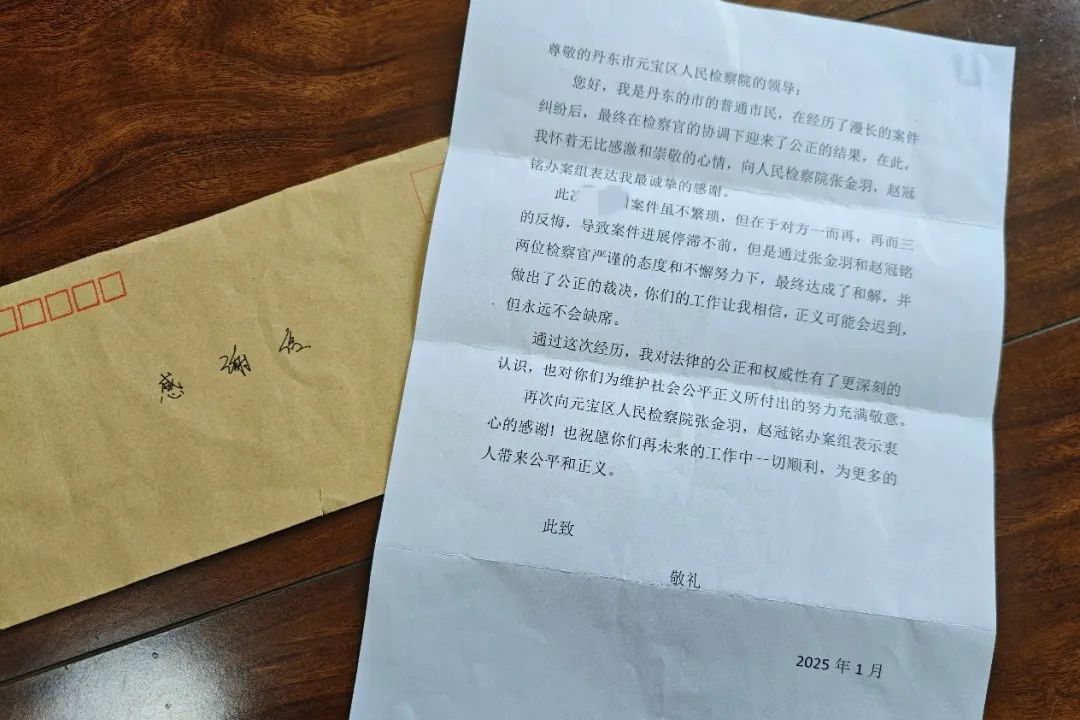 感谢信
尊敬的丹东市元宝区人民检察院的领导：
您好，我是丹东的市的普通市民，在经历了漫长的案件
纠纷后，最终在检察官的协调下迎来了公正的结果，在此，
我怀着无比感激和崇敬的心情，向人民检察院张金羽，赵冠
铭办案组表达我最诚挚的感谢。
此次 案件虽不繁琐，但在于对方一而再，再而三
的反悔，导致案件进展停滞不前，但是通过张金羽和赵冠铭
两位检察官严谨的态度和不懈努力下，最终达成了和解，并
做出了公正的裁决，你们的工作让我相信，正义可能会迟到，
但永远不会缺席。
通过这次经历，我对法律的公正和权威性有了更深刻的
认识，也对你们为维护社会公平正义所付出的努力充满敬意。
再次向元宝区人民检察院张金羽，赵冠铭办案组表示衷
心的感谢！也祝愿你们再未来的工作中一切顺利，为更多的
人带来公平和正义。
此致
敬礼
2025 年 1 月